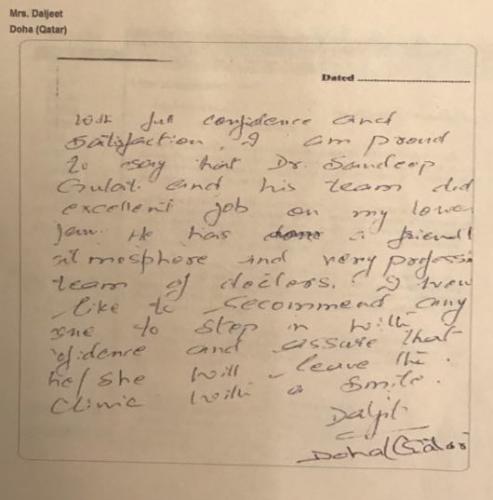 Mrs. Daljeet
Doha (Qatar)
Dated
With full confidence and
satisfaction, I am proud
to say that Dr. Sandeep
Gulati and his team did
excellent job on my lower
jaw. He has a friendl
atmosphere and very professi
team of doctors. I
like to recommend any
one to step in with
fidence and assure that
he/she will leave the
clinic with a smile.
Daljit
Doha (Qatar